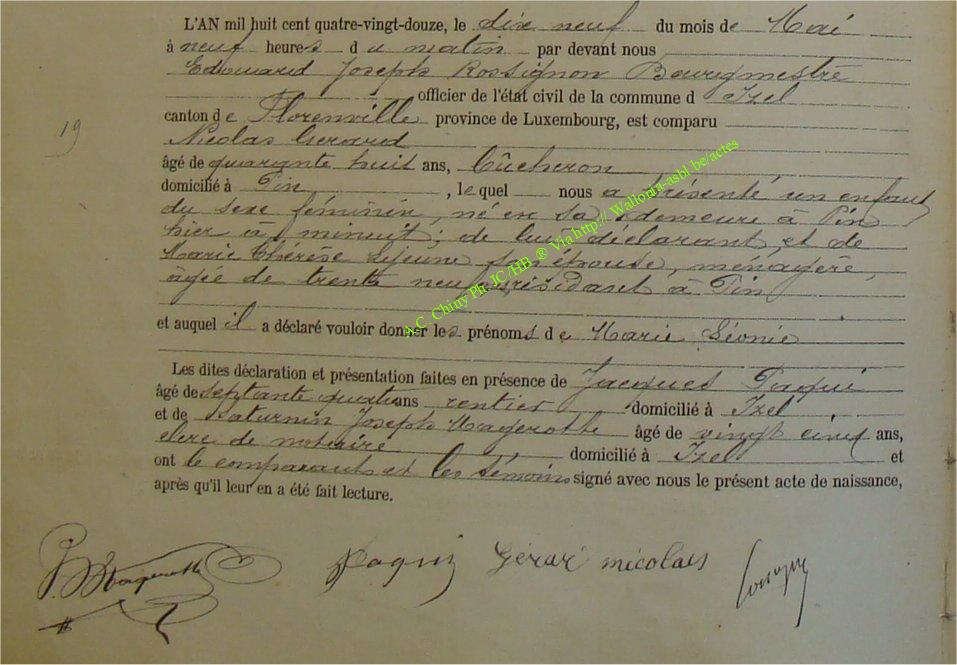 L'AN mil huit cent quatre-vingt-douze, le dix neuf du mois de Mai
à neuf heures du matin par devant nous
Edouard Joseph Rossignon Bourgmestre
officier de l'état civil de la commune d Izel
canton de Florenville province de Luxembourg, est comparu
Nicolas Gerard
19
âgé de quarante huit ans, Bûcheron
domicilié à Pin, lequel nous a présenté un enfant
du sexe féminin, né en sa demeure à Pin
hier à minuit; de lui déclarant et de
Marie Thérèse Lejeune son épouse, ménagère,
âgée de trente neuf résidant à Pin
et auquel il a déclaré vouloir donner les prénoms de Marie Léonie
Les dites déclaration et présentation faites en présence de Jacques Paqui
âgé de septante quatre ans, rentier domicilié à Izel
et de Saturnin Joseph Magerotte âgé de vingt cinq ans,
clerc de notaire domicilié à Izel et
ont le comparant et les témoins signé avec nous le présent acte de naissance,
après qu'il leur en a été fait lecture.
Magerotte Paqui Gérar nicolas
A.C. Chiny Ph. JC /HB ® Via http:// Wallonia-asbl.be/actes